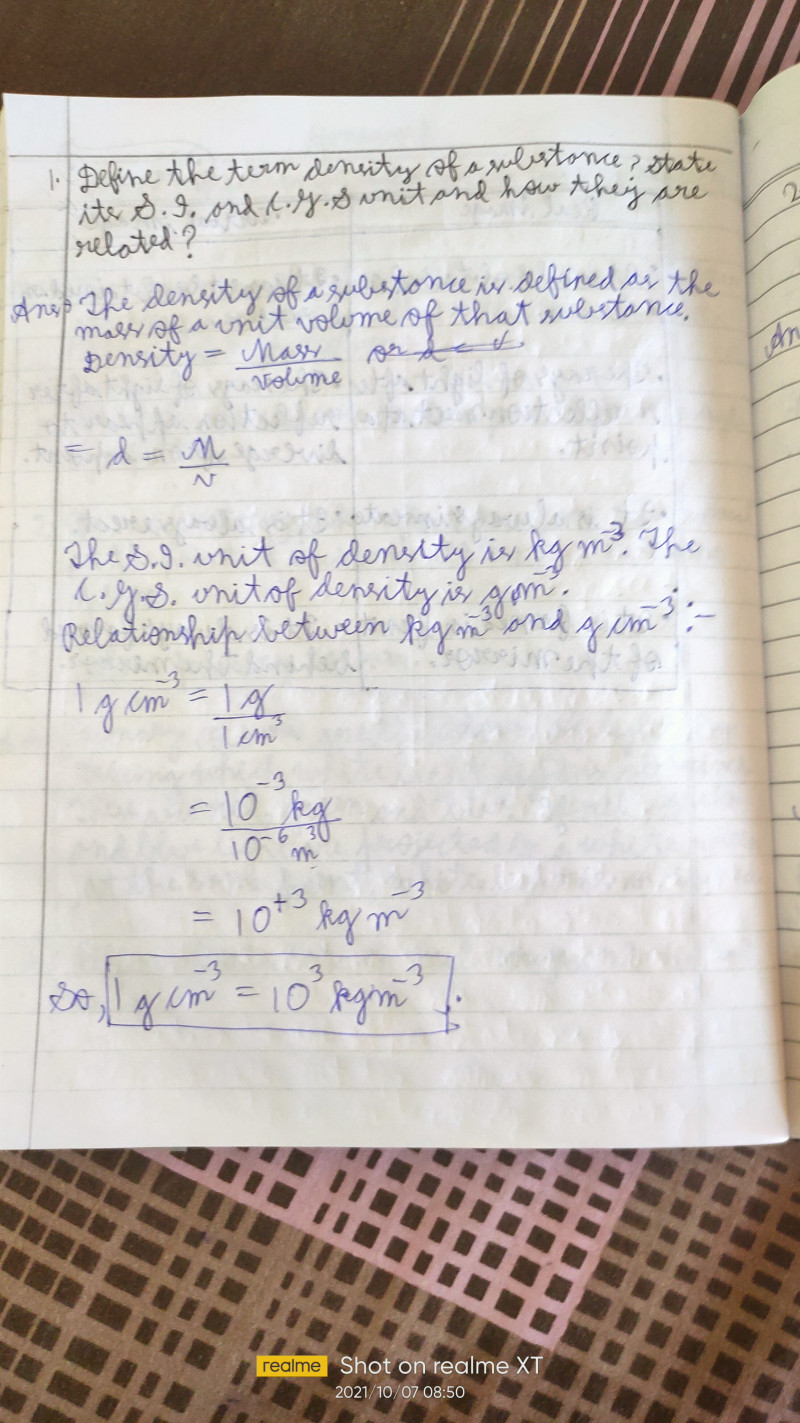 1. Define the term density of a substance? State
its S.I. and C.G.S unit and how they are
related?
Ans⇒ The density of a substance is defined as the
mass of a unit volume of that substance.
Density = Mass / Volume or
= d = M / V
The S.I. unit of density is kg m⁻³. The
C.G.S. unit of density is g cm⁻³.
Relationship between kg m⁻³ and g cm⁻³ :-
1 g cm⁻³ = 1 g / 1 cm³
= 10⁻³ kg / 10⁻⁶ m³
= 10⁺³ kg m⁻³
So, 1 g cm⁻³ = 10³ kg m⁻³.
2
An
realme Shot on realme XT
2021/10/07 08:50